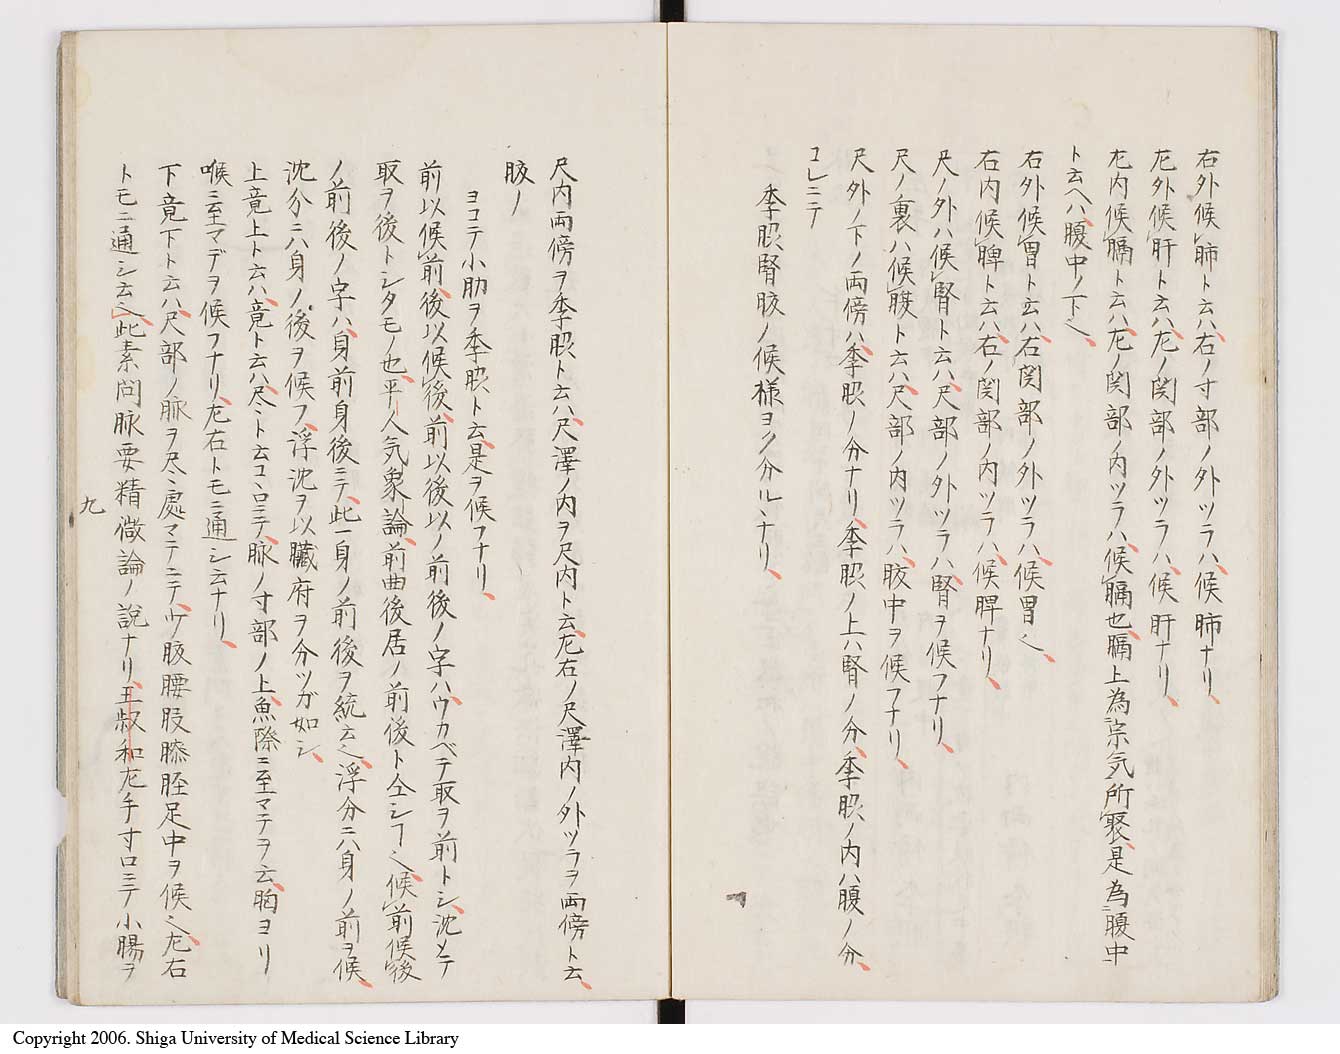 右外候肺ト云ハ右ノ寸部ノ外ツラハ候肺ナリ
左外候肝ト云ハ左ノ関部ノ外ツラハ候肝ナリ
左内候膈ト云ハ左ノ関部ノ内ツラハ候膈也膈上為宗気所聚是為腹中
ト云ヘハ腹中ノ下ヘ
右外候胃ト云ハ右関部ノ外ツラハ候胃ヘ
右内候脾ト云ハ右ノ関部ノ内ツラハ候脾ナリ
尺ノ外ハ候腎ト云ハ尺部ノ外ツラハ腎ヲ候フナリ
尺ノ裏ハ候腹ト云ハ尺部ノ内ツラハ腹中ヲ候フナリ
尺外ノ下ノ両傍ハ季脇ノ分ナリ季脇ノ上ハ腎ノ分季脇ノ内ハ腹ノ分
コレニテ
季脇腎腹ノ候様ヨク分ルヽナリ
尺内両傍ヲ季脇ト云ハ尺澤ノ内ヲ尺内ト云左右ノ尺澤内ノ外ツラヲ両傍ト云
腋ノ
ヨコテ小肋ヲ季脇ト云是ヲ候フナリ
前以候前後以候後前以後以ノ前後ノ字ハウカベテ取ヲ前トシ沈メテ
取ヲ後トシタモノ也平人気象論前曲後居ノ前後ト仝シヿヘ候前候後
ノ前後ノ字ハ身前身後ニテ此一身ノ前後ヲ統云ヘ浮分ニハ身ノ前ヲ候
沈分ニハ身ノ後ヲ候フ浮沈ヲ以臓府ヲ分ツガ如シ
上竟上ト云ハ竟ト云ハ尽ト云コヽロニテ脉ノ寸部ノ上魚際ニ至マテヲ云胸ヨリ
喉ニ至マデヲ候フナリ左右トモニ通シ云ナリ
下竟下ト云ハ尺部ノ脉ヲ尽ス處マテニテ少腹腰股膝脛足中ヲ候ヘ左右
トモニ通シ云ヘ此素問脉要精微論ノ説ナリ王叔和左手寸口ニテ小腸ヲ
九
Copyright 2006. Shiga University of Medical Science Library